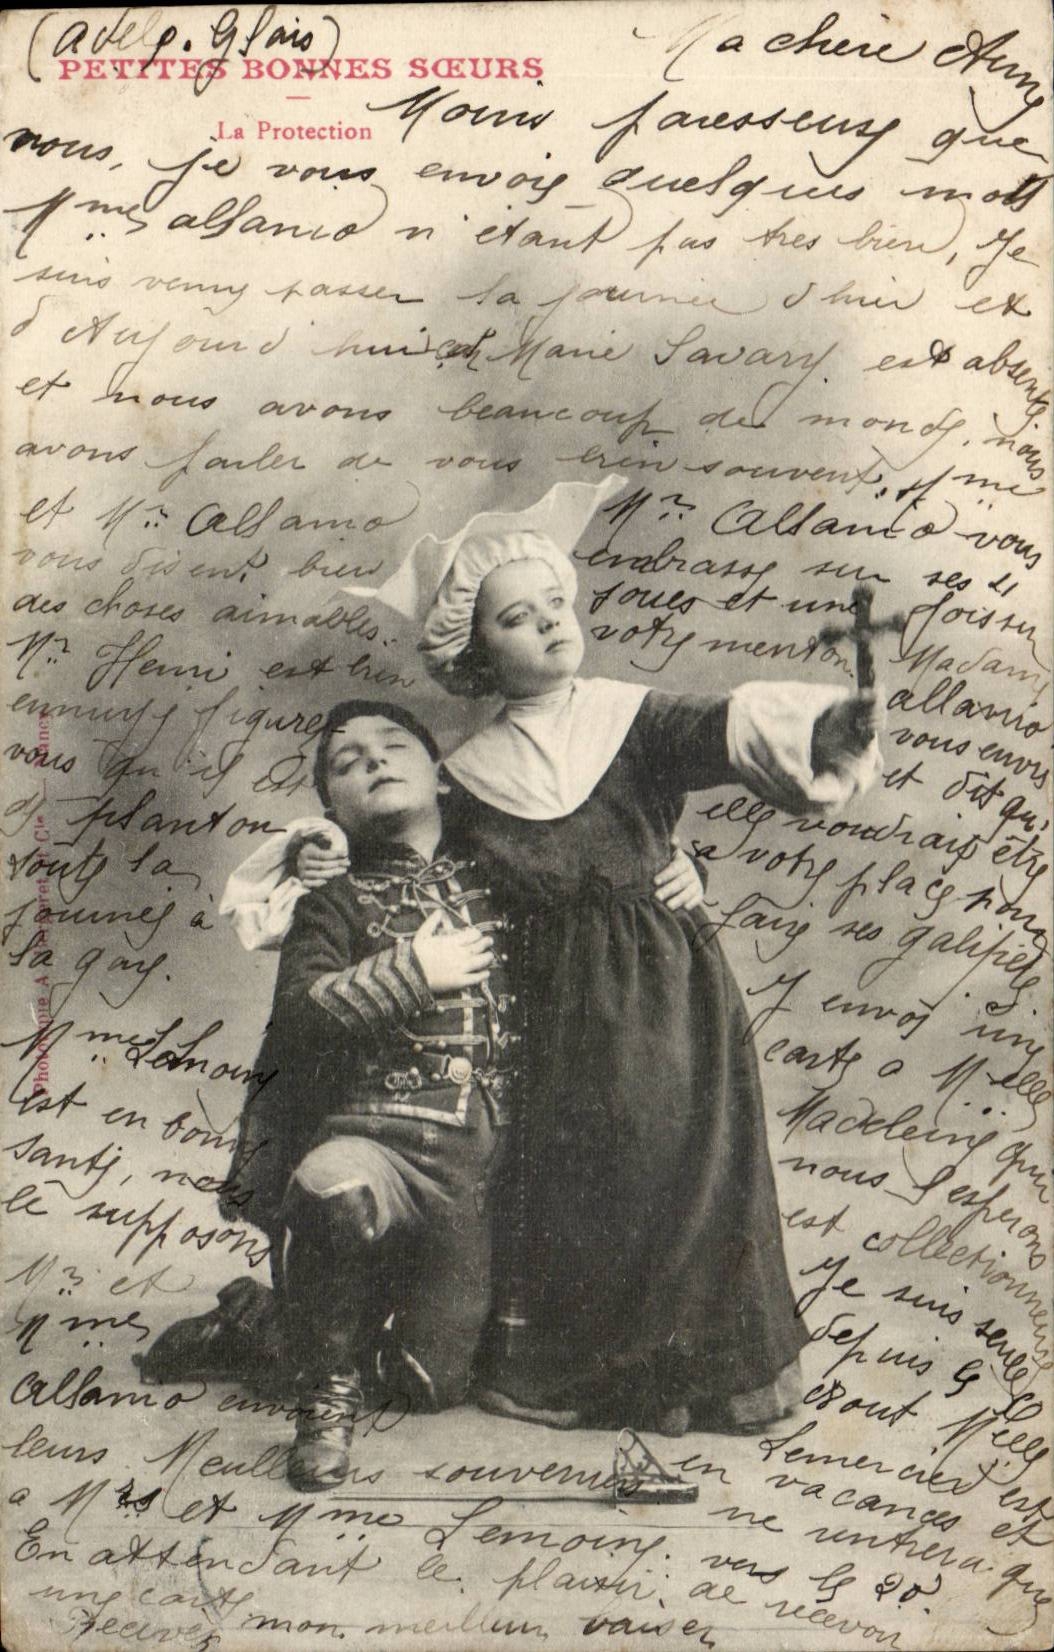 (Adelp. Glais)
PETITES BONNES SŒURS
La Protection
Ma chère
Moins paresseuse que
vous, je vous envoie quelques mots
Mme allanio n'étant pas très bien, Je
suis venue passer la journée d'hier et
d'Aujourd'hui Marie Savary est absente
et nous avons beaucoup de monde. nous
avons parler de vous bien souvent. Mme
et Mr Allanio
vous disent bien
des choses aimables.
Mr Henri est bien
ennuyé figurez
vous qu'il est
de planton
toute la
journée à
la gare.
Mme Lemoine
est en bonne
santé, nous
le supposons
Mr et
Mme
Allanio envoient
leurs Meilleurs souvenirs
a Mr et Mme Lemoine.
En attendant le plaisir de recevoir
une carte
Recevez mon meilleur baiser
Mr Allanio vous
embrasse sur ses 2
joues et une fois sur
votre menton.
Madame
allanio
vous envie
et dit qu'
elle voudrait être
a votre place pour
faire ses galipettes
J'envoie une
carte a Melle
Madeleine qui
nous l'espérons
est collectionneuse
Je suis seule
depuis le
août Melle
Lemercier est
en vacances et
ne rentrera que
vers le 20
Phototypie A. Bergeret et Cie — Nancy